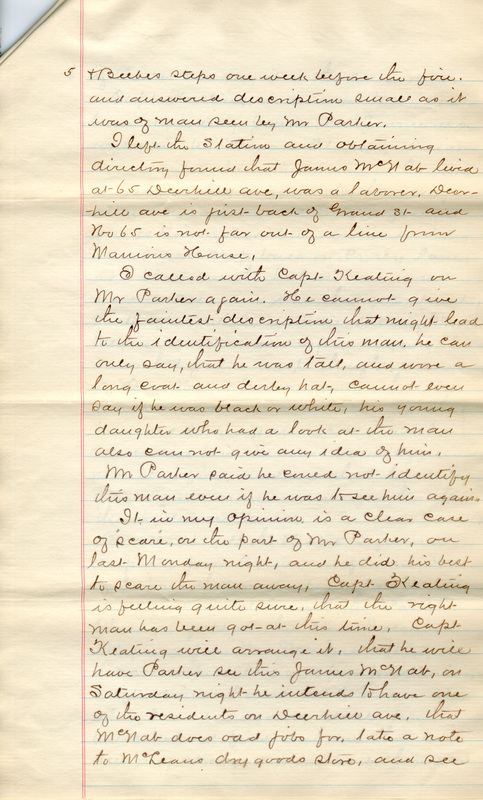 5 + Beebes steps one week before the fire.
and answered description small as it
was of man seen by Mr Parker.
I left the Station and obtaining
directory found that James McNab lived
at 65 Deerhill ave, was a laborer, Deer-
hill ave is just back of Grand St and
No 65 is not far out of a line from
Manions House,
I called with Capt Keating on
Mr Parker again. He cannot give
the faintest description that might lead
to the identification of this man, he can
only say, that he was tall, and wore a
long coat and derby hat, cannot even
say if he was black or white, his young
daughter who had a look at the man
also can not give any idea of him,
Mr Parker said he could not identify
this man even if he was to see him again.
It in my opinion is a clear case
of scare, on the part of Mr Parker, on
last Monday night, and he did his best
to scare the man away, Capt Keating
is feeling quite sure, that the right
man has been got at this time, Capt
Keating will arrange it, that he will
have Parker see this James McNab, on
Saturday night he intends to have one
of the residents on Deerhill ave, that
McNab does odd jobs for, take a note
to McLeans dry goods store, and see